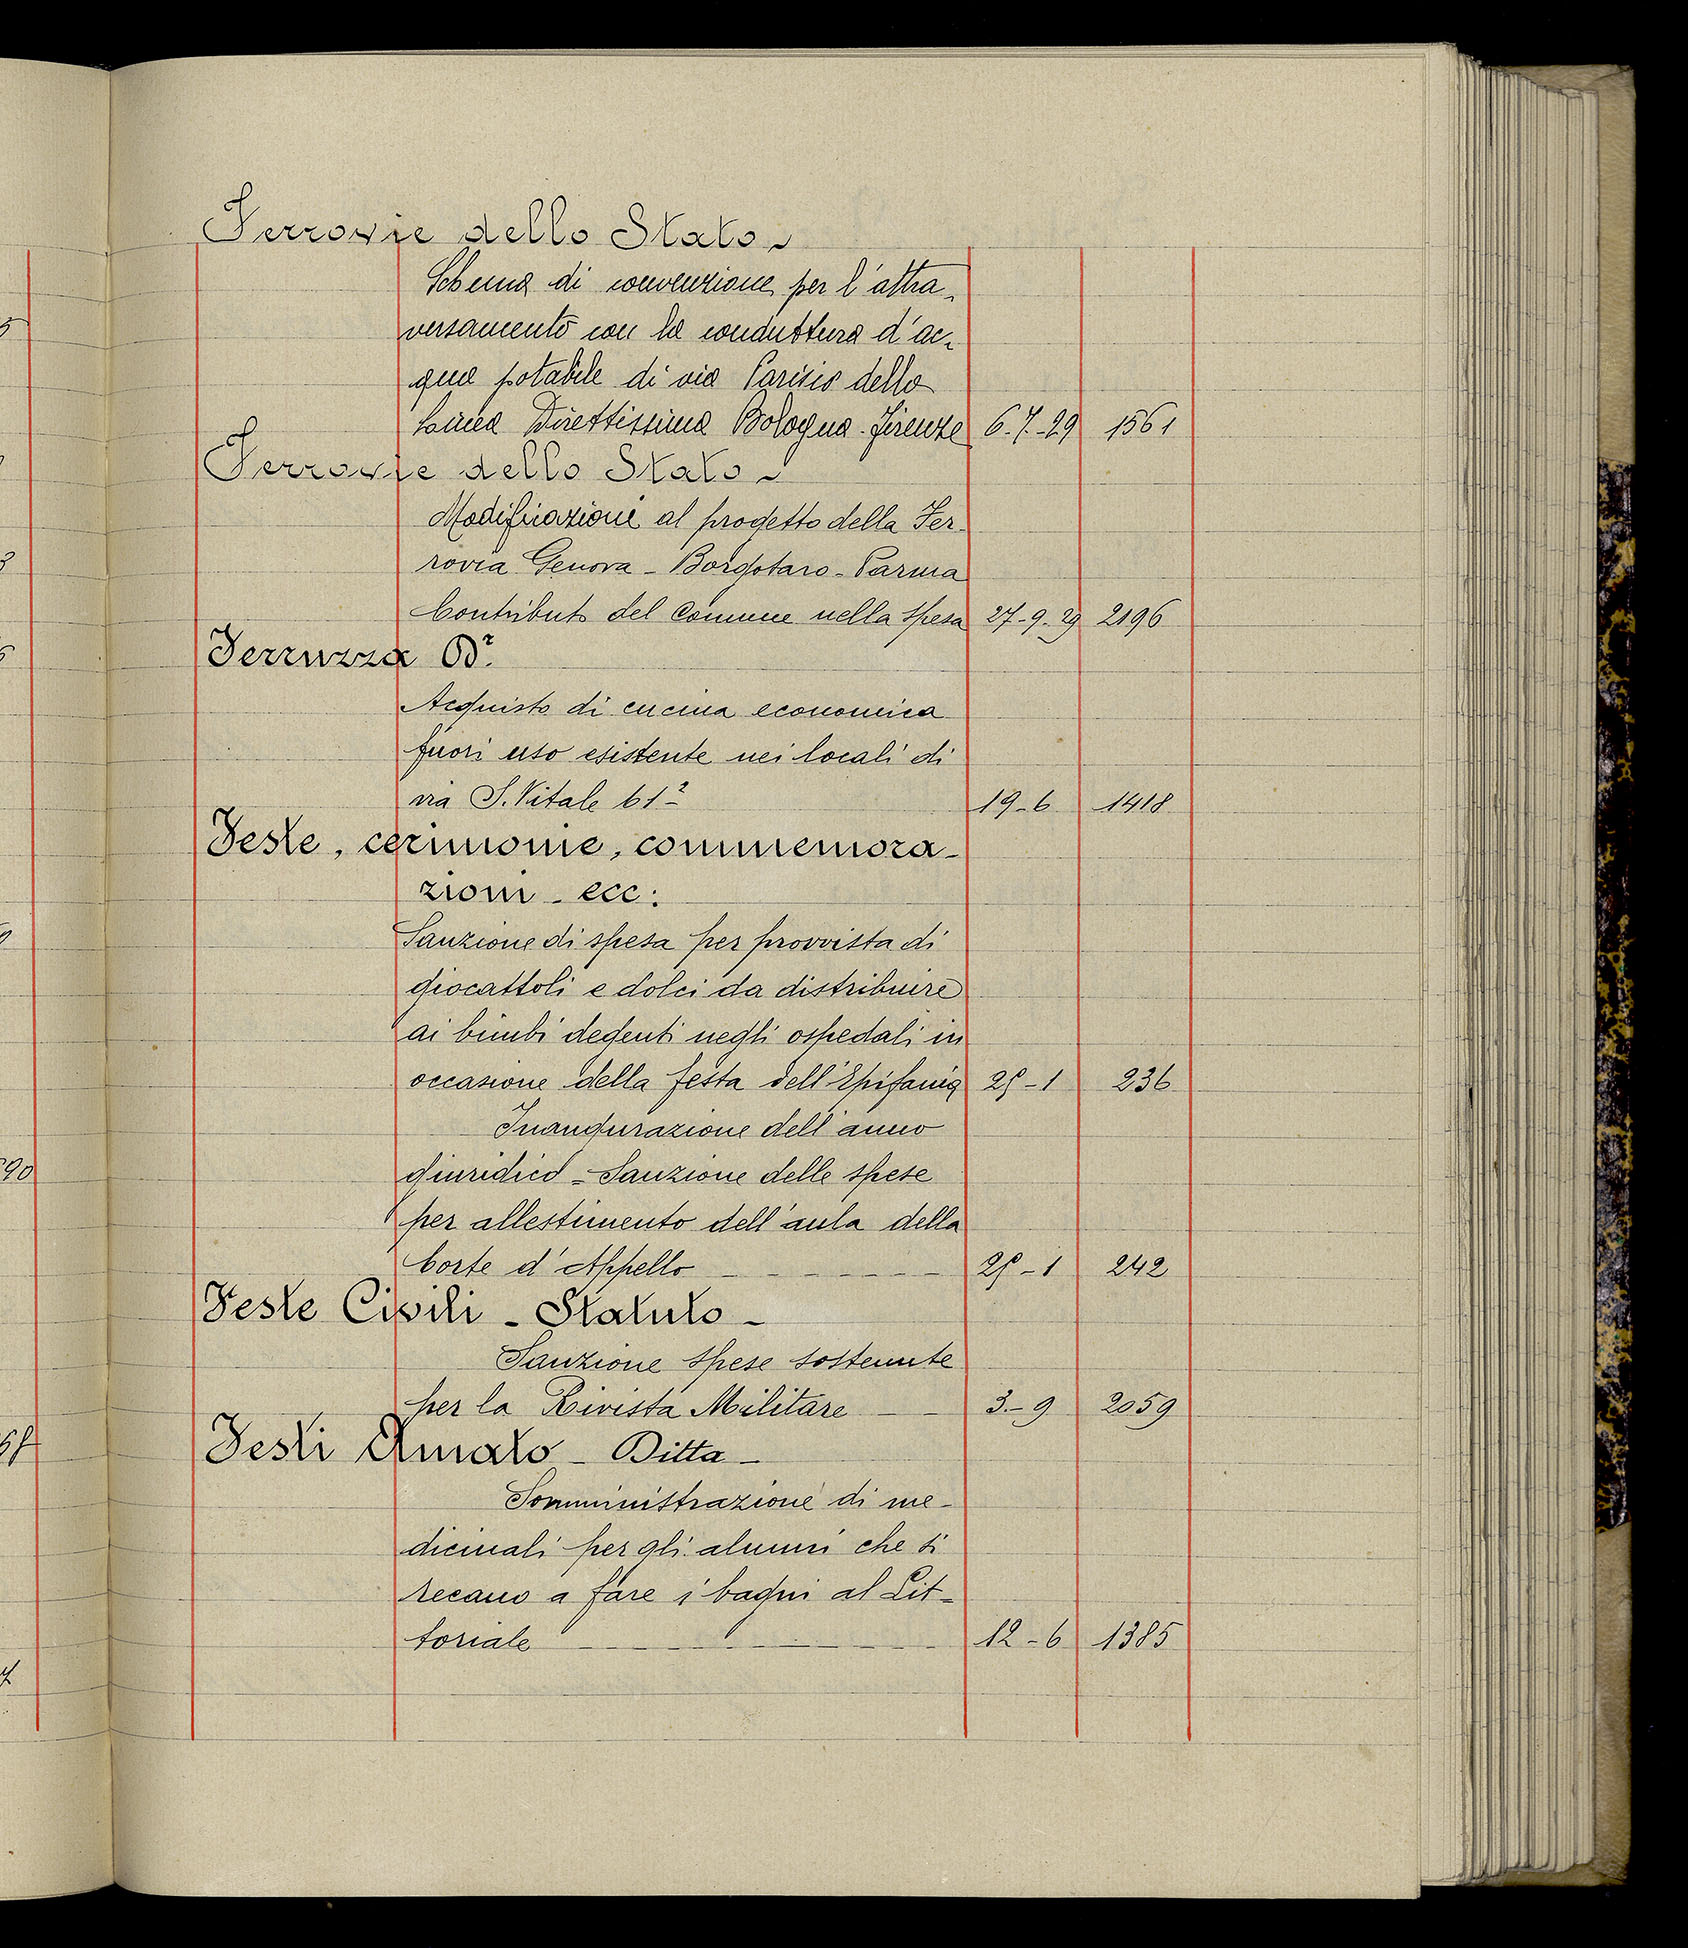 Ferrovie dello Stato -
Schema di convenzione per l'attra-
versamento con la conduttura d'ac-
qua potabile di via Parisio della
Linea Direttissima Bologna-Firenze 6-7-29 1561
Ferrovie dello Stato -
Modificazione al progetto della Fer-
rovia Genova - Borgotaro - Parma
Contributo del Comune nella spesa 27-9-29 2196
Ferruzza
Acquisto di cucina economica
fuori uso esistente nei locali di
via S. Vitale 61² 19-6 1418
Feste, cerimonie, commemora-
zioni - ecc:
Sanzione di spesa per provvista di
giocattoli e dolci da distribuire
ai bimbi degenti negli ospedali in
occasione della festa dell'Epifania 25-1 236
Inaugurazione dell'anno
giuridico = Sanzione delle spese
per allestimento dell'aula della
Corte d'Appello 25-1 242
Feste Civili - Statuto -
Sanzione spese sostenute
per la Rivista Militare 3-9 2059
Festi Amato - Ditta -
Somministrazione di me-
dicinali per gli alunni che si
recano a fare i bagni al Lit-
toriale 12-6 1385